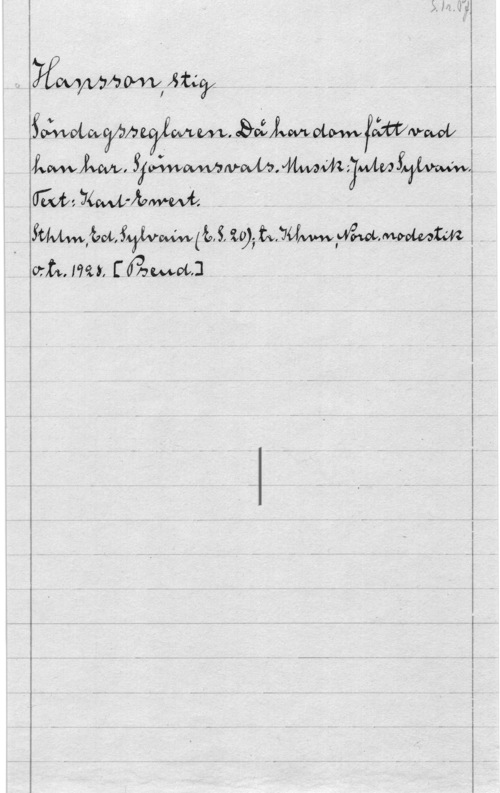 S.Tr. Pf
Hansson, Stig
Söndagsseglaren. Då har dom fått vad
han har. Sjömansvals. Musik: Jules Sylvain.
Text: Karl-Ewert.
Sthlm, Ed. Sylvain (E.S. 20); tr. Khvn, Nord. nodestik
o. tr. 1928. [Pseud.]